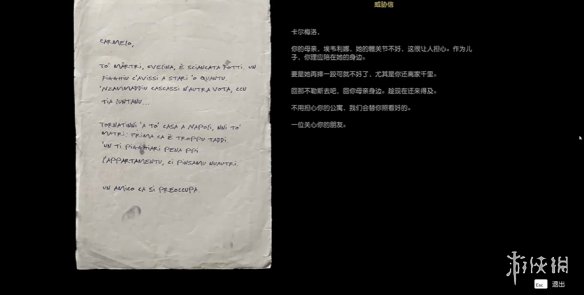 威胁信
CARMELO,
TO' MÀRTRI, EVELINA, È SCIANCATA POTTI. UN
FIGGHIU C'AVISSI A STARI 'O QUANTU.
CASCASSI N'AUTRA VOTA, CCU
TIA LUNTANU...
TORNATINNI 'A TO' CASA A NAPOLI, NNI TO'
MATRI. PRIMA CA È TROPPU TADDI.
'UN TI PIGGHIARI PENA PPI
L'APPARTAMENTU, CI PINSAMU NUAUTRI.
UN AMICO CA SI PREOCCUPA
卡尔梅洛，
你的母亲，埃韦利娜，她的髋关节不好，这很让人担心。作为儿
子，你理应陪在她的身边。
要是她再摔一跤可就不好了，尤其是你还离家千里。
回那不勒斯去吧，回你母亲身边。趁现在还来得及。
不用担心你的公寓，我们会替你照看好的。
一位关心你的朋友。
游侠网
Esc 退出